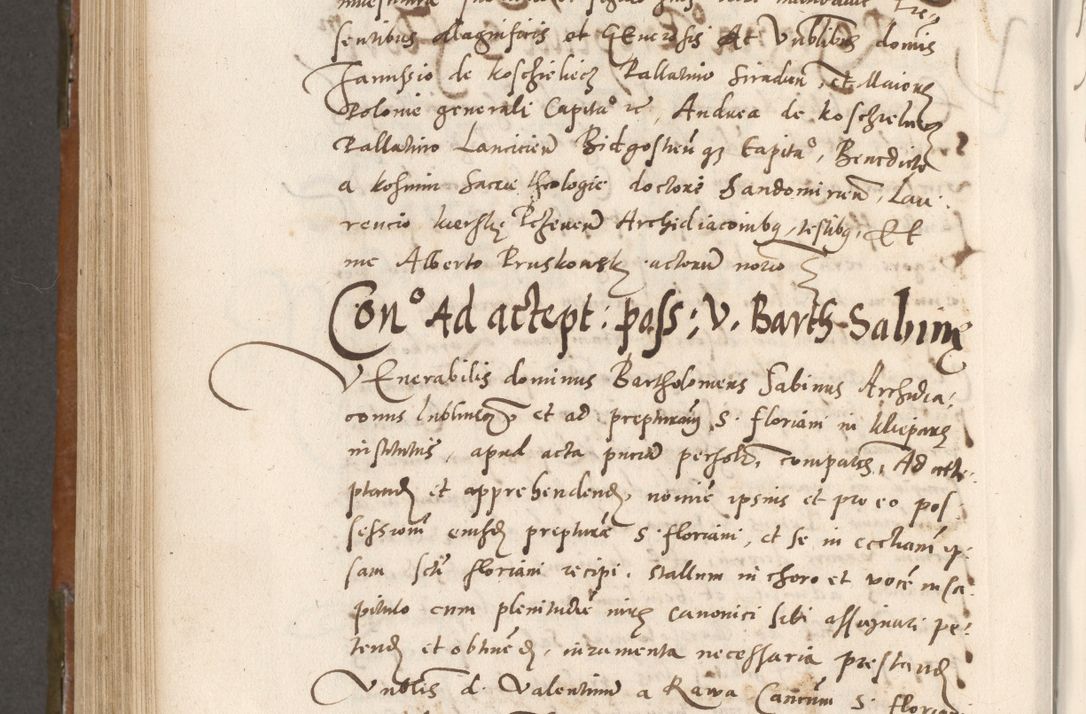 sentibus Magnificis et Generosis Ac Vnblibus domis
Janussio de Koscheliecz Pallatino Siradien, et Maioris
Polonie generali Capitao re, Andrea de Koschelecz
Pallatino Lancicien Bidgostien qz Capitao, Benedicto
a Kosmin Sacre theologie doctore Sandomirien, Lau
rencio Archidiaconibq, testibq, Et
me Alberto Pruskowsky actorum norio
Cono Ad actept: poss: V. Barth. Sabiny
VEnerabilis dominus Bartholomeus Sabinus Archidia:
conus Lublinen et ad prepturam S. Floriani in Kleparz
institutus, apud acta pntia personalr comparens, Ad acte:
ptand et apprehendend, nomine ipsius et pro eo pos
sessionem eiusd prepture S. Floriani, et se in ecctiam ip:
sam scti Floriani recipi. Stallum in choro et vocem in ca
pitulo cum plenitudie iuris canonici sibi assignari pe:
tend et obtinend, iuramenta necessaria prestand
Vnblis d. Valentinum a Rawa Cancum S. Floriani